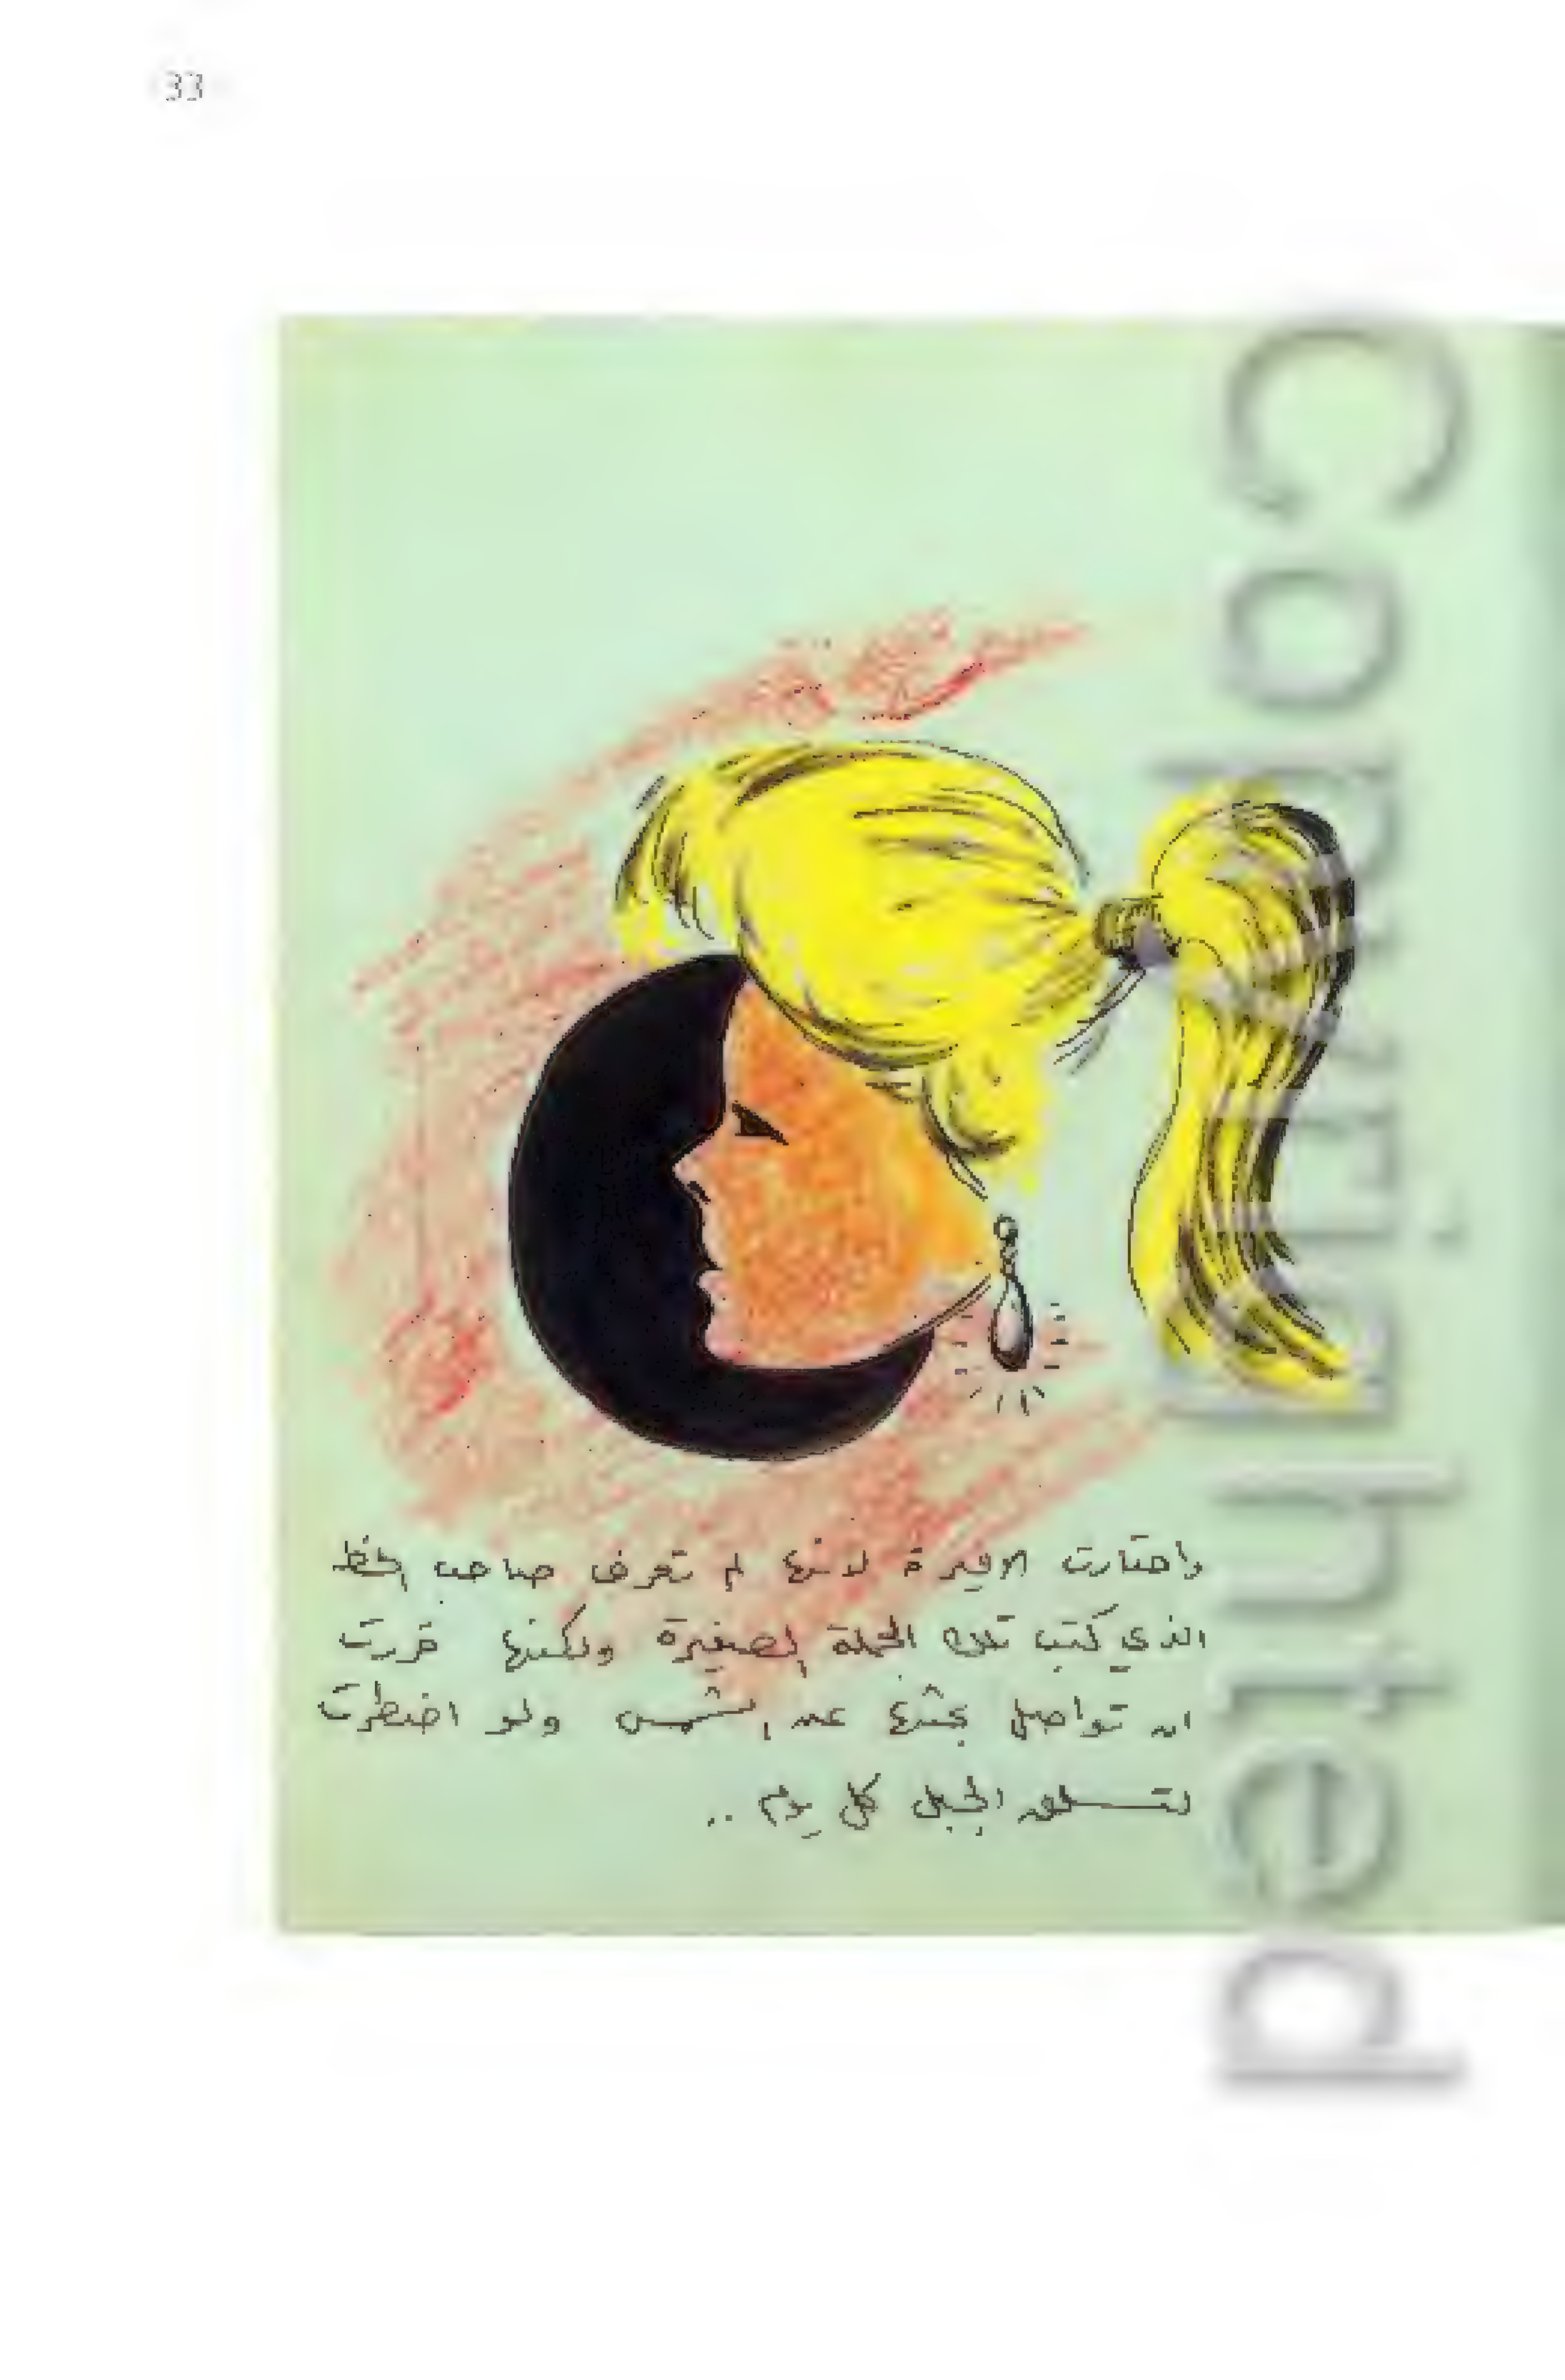 33
واحتارت الاميرة لانها لم تعرف صاحب الخط
الذي كتب تلك الجملة الصغيرة ولكنها قررت
ان تواصل بحثها عن الشمس ولو اضطرت
لتسلق الجبل كل يوم ..
Copyrighted